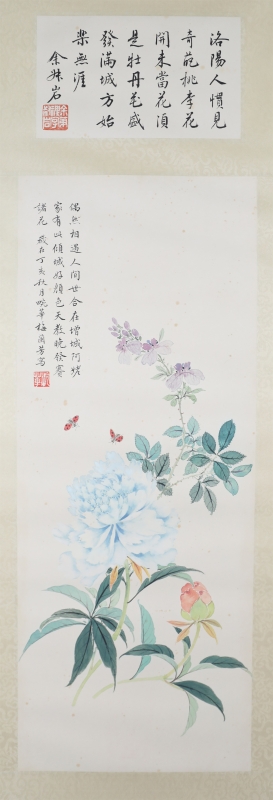 洛陽人慣見
奇葩桃李花
開未當花須
是牡丹花盛
發滿城方始
樂無涯
余叔岩
偶然相遇人間世合在增城阿姥
家有此傾城好顏色天教晚發賽
諸花 歲在丁亥秋月畹華梅蘭芳寫